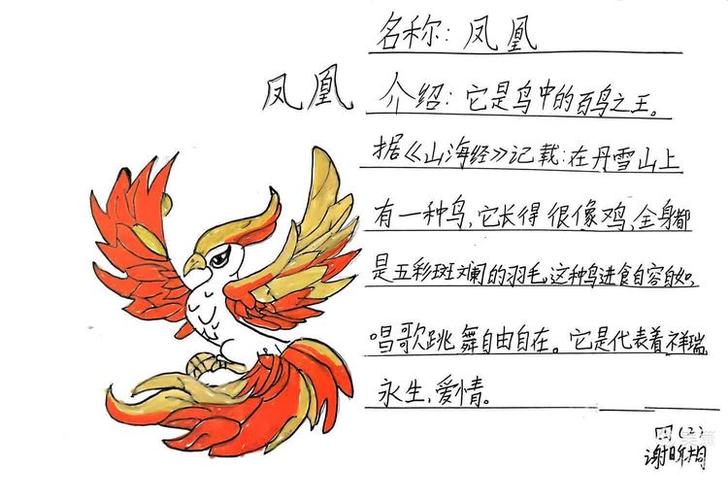 名称：凤凰
凤凰
介绍：它是鸟中的百鸟之王。
据《山海经》记载：在丹雪山上
有一种鸟，它长得很像鸡，全身都
是五彩斑斓的羽毛，这种鸟进食自容自如，
唱歌跳舞自由自在。它是代表着祥瑞，
永生，爱情。
四（2）